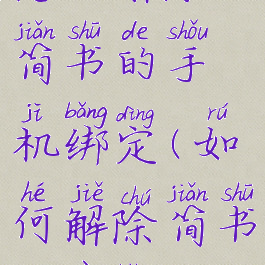 jiǎn shū de shǒu
简书的手
jī bǎng dìng rú
机绑定(如
hé jiě chú jiǎn shū
何解除简书